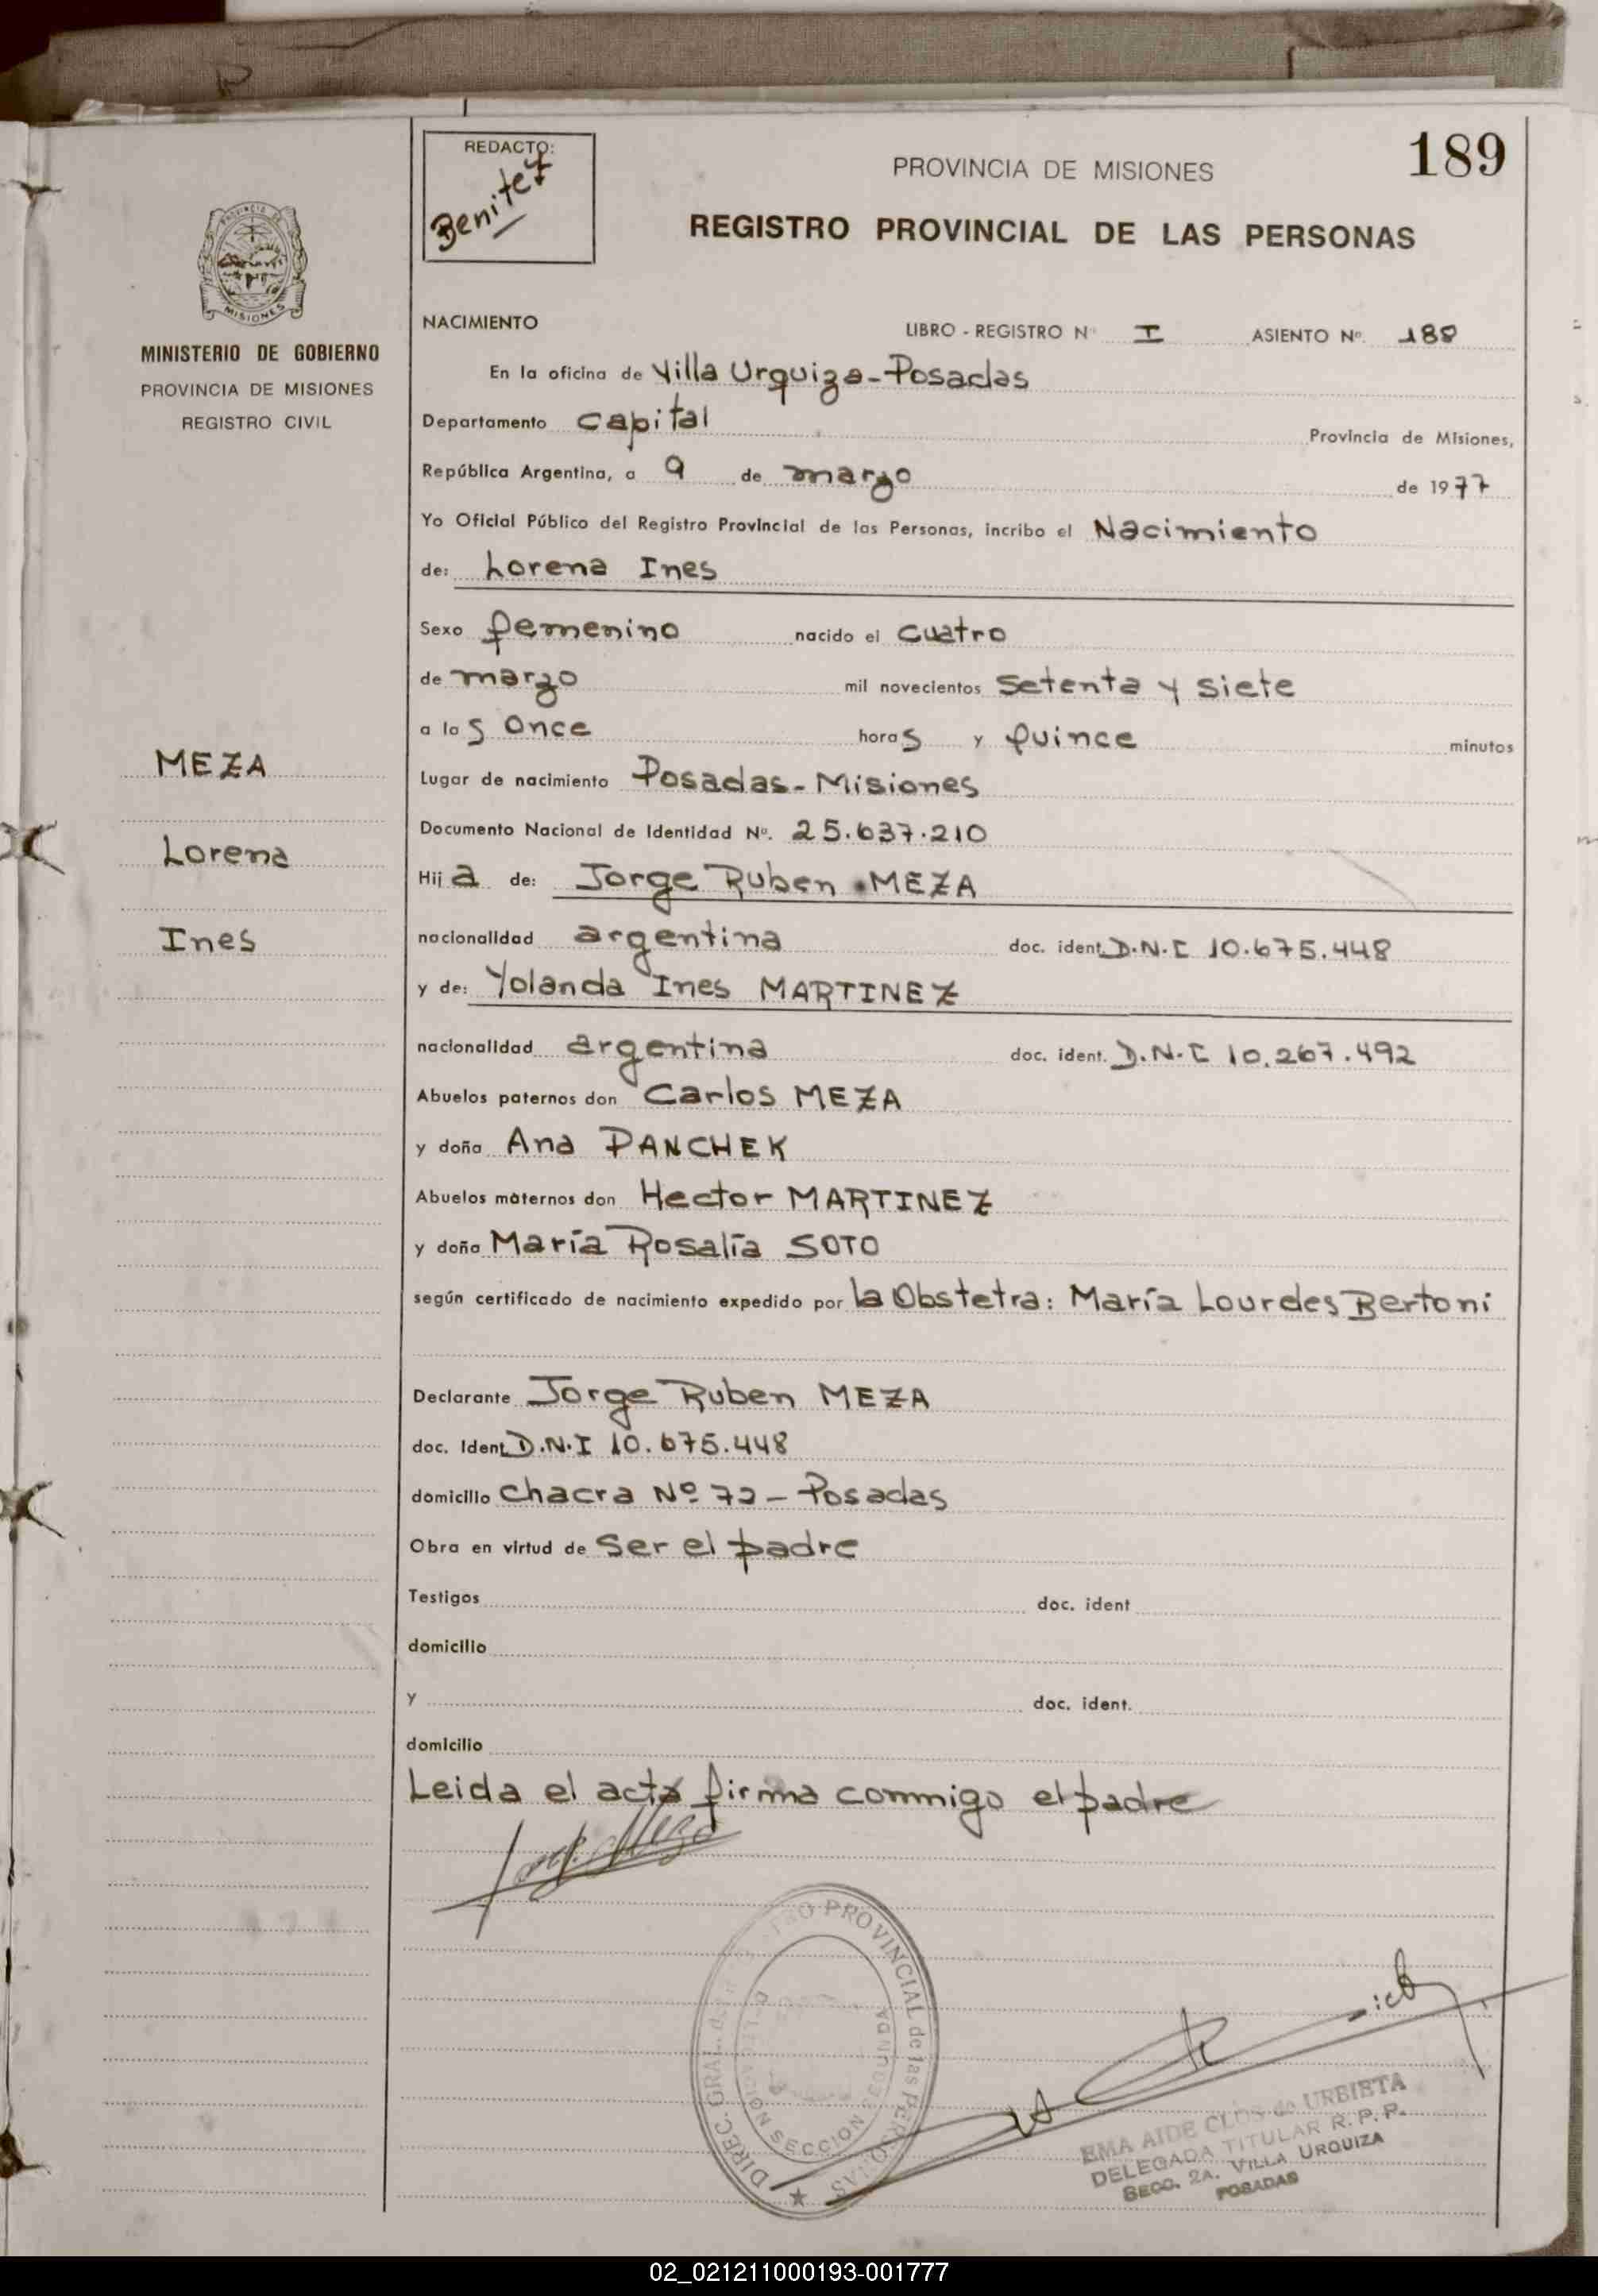 189
REDACTO:
Benitez
PROVINCIA DE MISIONES
REGISTRO PROVINCIAL DE LAS PERSONAS
MISIONES
MINISTERIO DE GOBIERNO
PROVINCIA DE MISIONES
REGISTRO CIVIL
MEZA
Lorena
Ines
NACIMIENTO LIBRO - REGISTRO Nº I ASIENTO Nº. 188
En la oficina de Villa Urquiza-Posadas
Departamento Capital Provincia de Misiones,
República Argentina, a 9 de marzo de 1977
Yo Oficial Público del Registro Provincial de las Personas, incribo el Nacimiento
de: Lorena Ines
Sexo femenino nacido el cuatro
de marzo mil novecientos setenta y siete
a las once horas y quince minutos
Lugar de nacimiento Posadas-Misiones
Documento Nacional de Identidad Nº. 25.637.210
Hija de: Jorge Ruben MEZA
nacionalidad argentina doc. ident. D.N.I 10.675.448
y de: Yolanda Ines MARTINEZ
nacionalidad argentina doc. ident. D.N.I 10.267.492
Abuelos paternos don Carlos MEZA
y doña Ana PANCHEK
Abuelos maternos don Hector MARTINEZ
y doña María Rosalía SOTO
según certificado de nacimiento expedido por la Obstetra: María Lourdes Bertoni
Declarante Jorge Ruben MEZA
doc. Ident. D.N.I 10.675.448
domicilio Chacra Nº 72 - Posadas
Obra en virtud de ser el padre
Testigos doc. ident
domicilio
y doc. ident.
domicilio
Leida el acta firma conmigo el padre
DIREC. GRAL. PROVINCIAL de las PERSONAS
SECCION SEGUNDA
EMA AIDE CLOS de URBIETA
DELEGADA TITULAR R.P.P.
SECC. 2A. VILLA URQUIZA
POSADAS
02_021211000193-001777